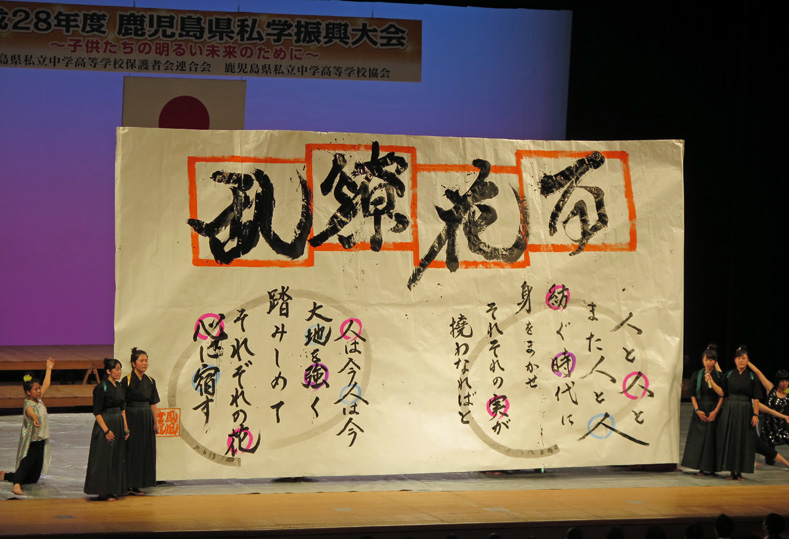 成28年度 鹿児島県私学振興大会
～子供たちの明るい未来のために～
島県私立中学高等学校保護者会連合会 鹿児島県私立中学高等学校協会
百花繚乱
人と人と
また人と人
紡ぐ時代に
身をまかせ
それぞれの実が
撓わなればと
人は今人は今
大地を強く
踏みしめて
それぞれの花
心に宿す